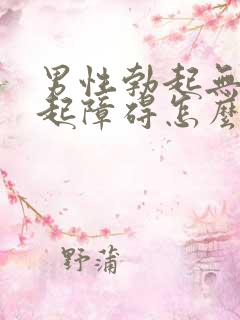 男性勃起無
起障碍怎麽
野蒲